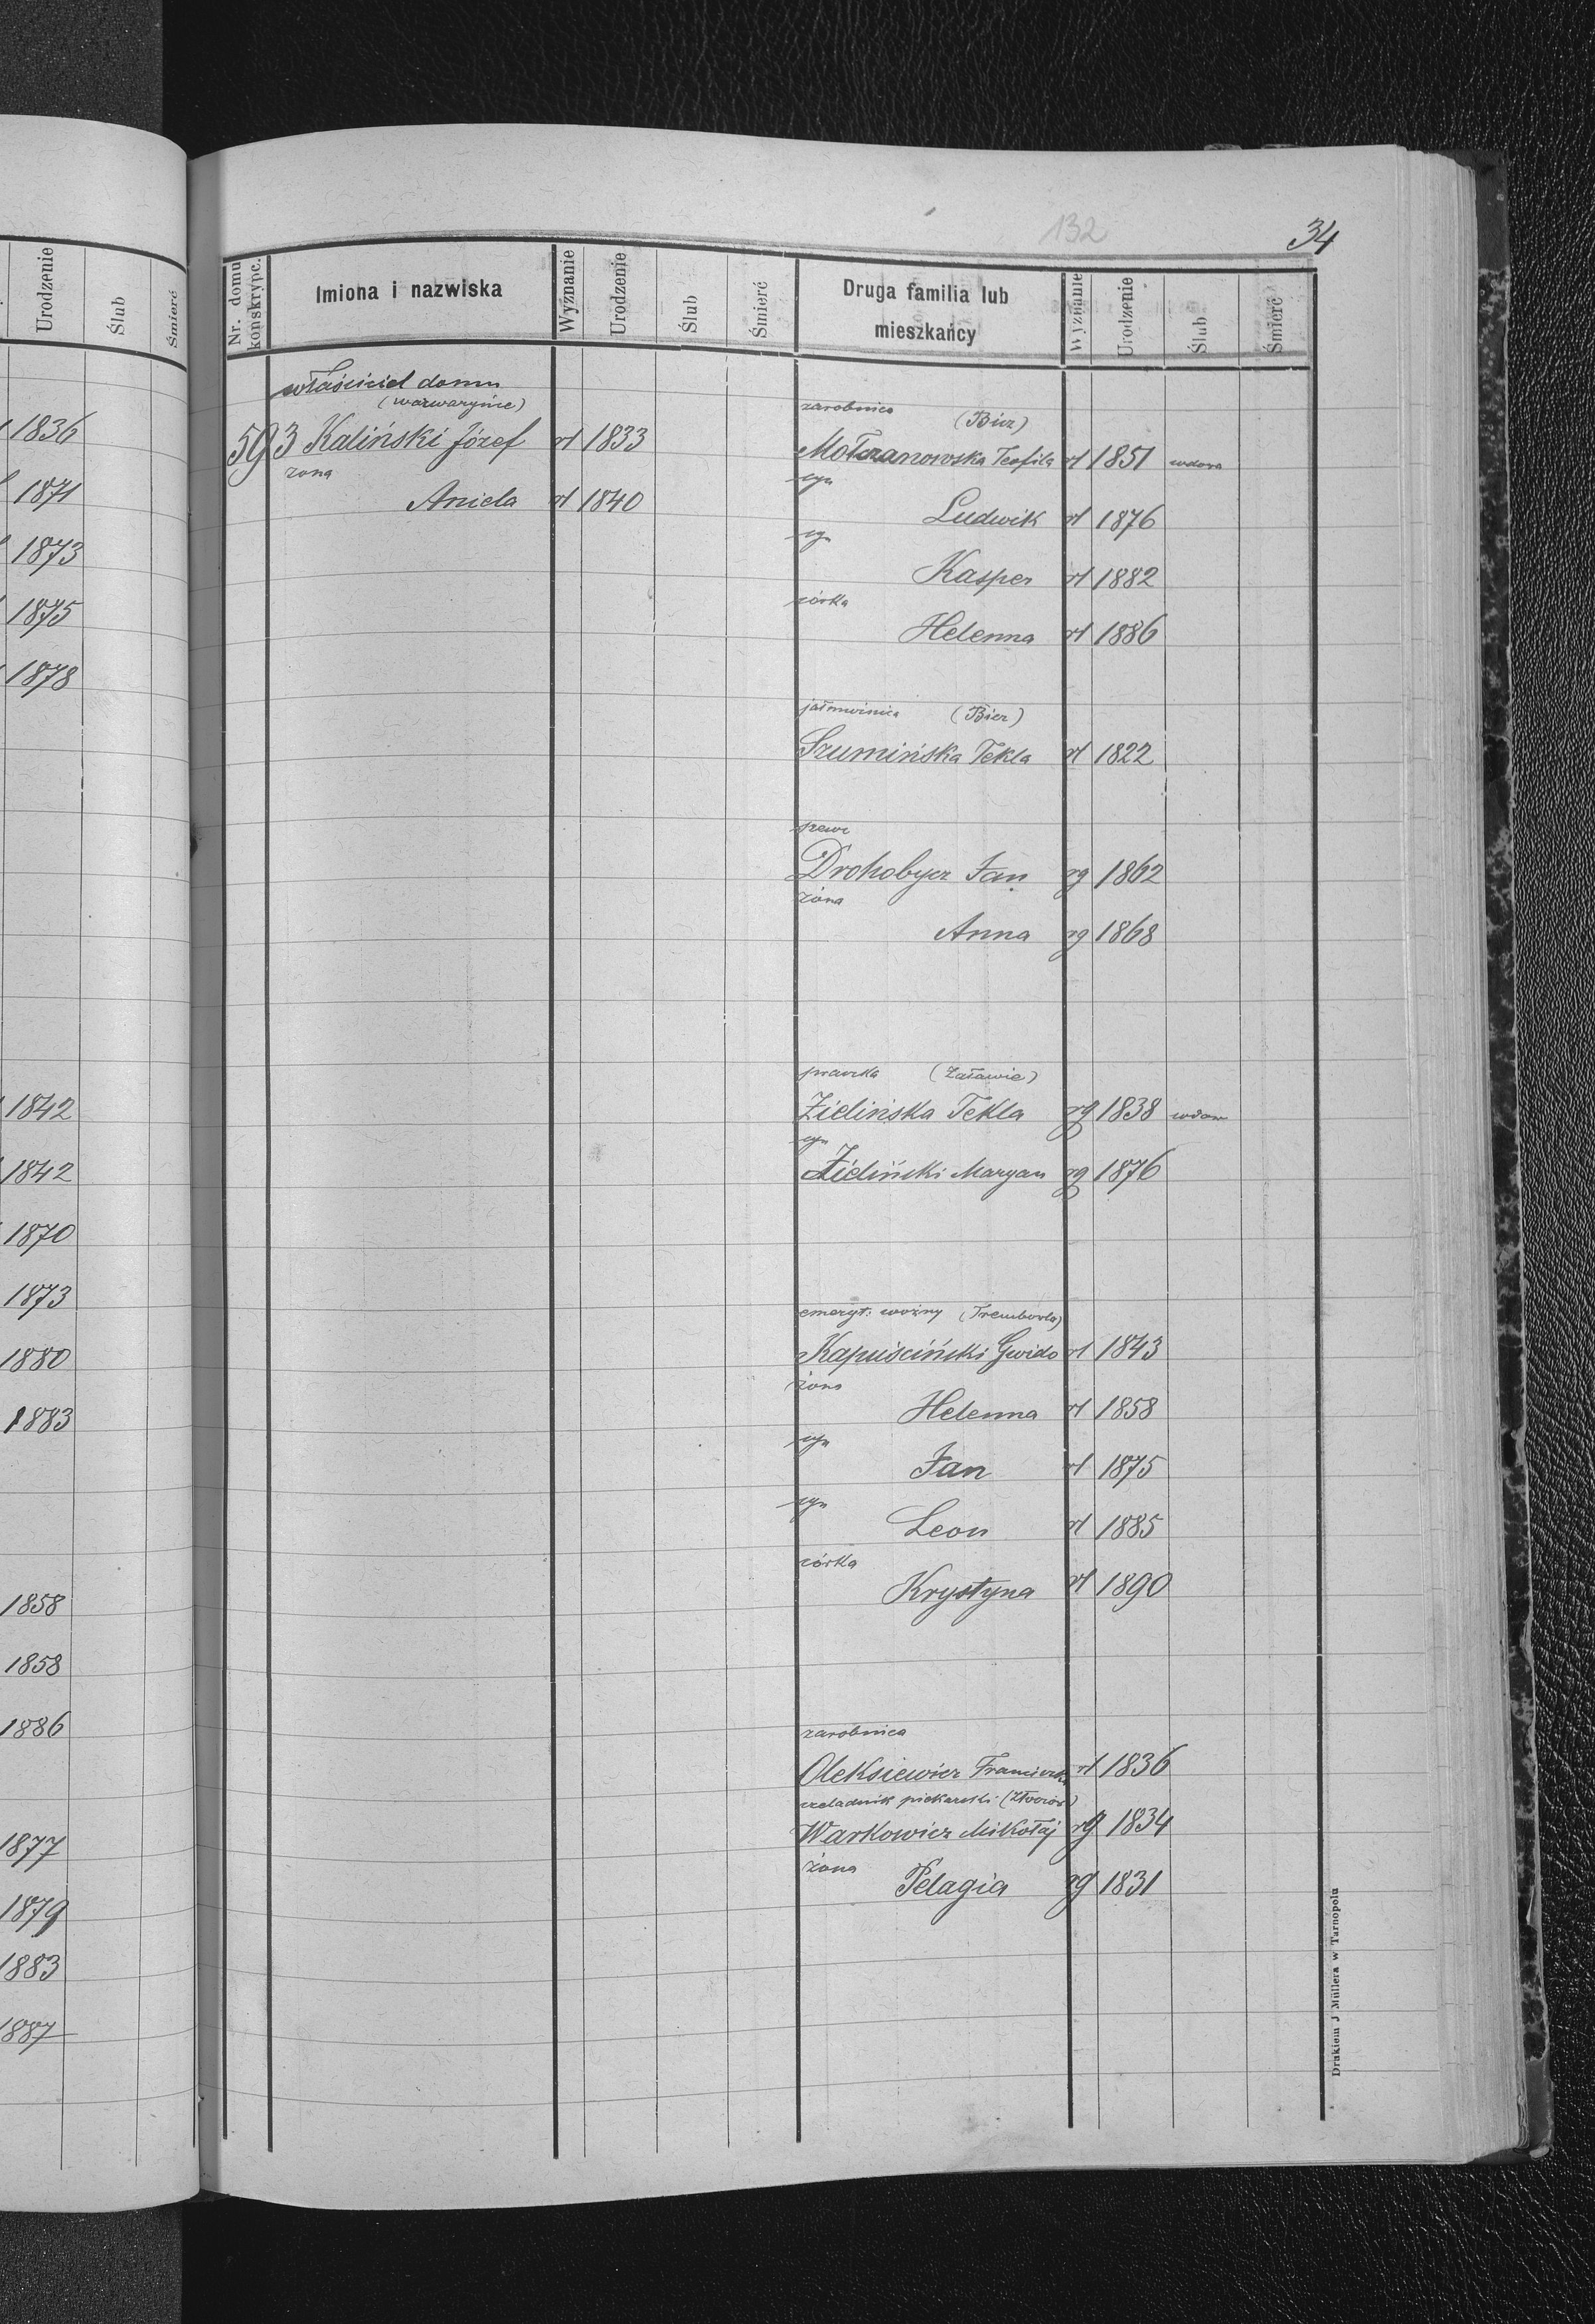 Urodzenie
Ślub
Śmierć
1836
1871
1873
1875
1878
1842
1842
1870
1873
1880
1883
1858
1858
1886
1877
1879
1883
1887
132
34
Nr. domu konskrypc.
Imiona i nazwiska
Wyznanie
Urodzenie
Ślub
Śmierć
Druga familia lub
mieszkańcy
Wyznanie
Urodzenie
Ślub
Śmierć
właściciel domu
(warwaryńce)
593 Kaliński Józef rł 1833
żona
Aniela rł 1840
zarobnica
Mołczanowska Teofila rł 1851 wdowa
syn
Ludwik rł 1876
syn
Kasper rł 1882
córka
Helenna rł 1886
(Bier)
Szumińska Tekla rł 1822
szewc
Drohobycz Jan rg 1862
żona
Anna rg 1868
praczka (Załawie)
Zielińska Tekla rg 1838 wdowa
syn
Zieliński Maryan rg 1876
emeryt. woźny (Trembowla)
Kapuściński Gwido rł 1843
żona
Helenna rł 1858
syn
Jan rł 1875
syn
Leon rł 1885
córka
Krystyna rł 1890
zarobnica
Oleksiewicz rł 1836
czeladnik piekarski
Warkowicz Mikołaj rg 1834
żona
Pelagia rg 1831
Drukiem J Müllera w Tarnopolu